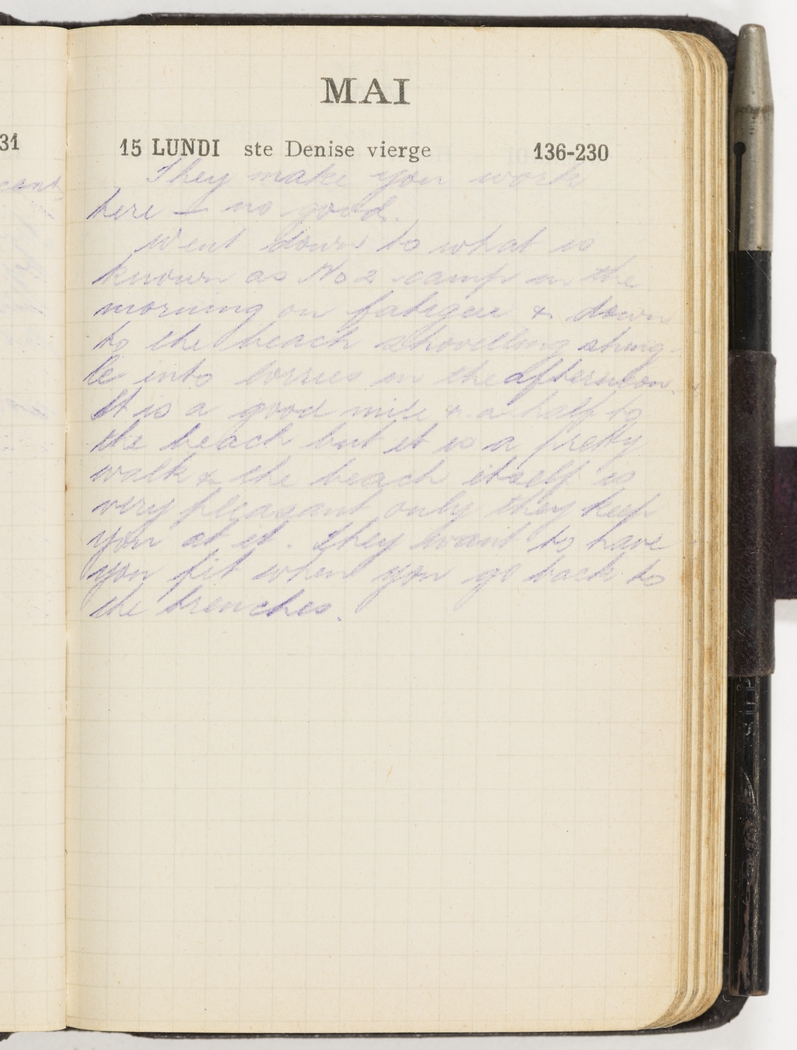 31
MAI
15 LUNDI ste Denise vierge 136-230
They make you work
here - no good.
Went down to what is
known as No 2 camp in the
morning on fatigue & down
to the beach shovelling shing-
le into lorries in the afternoon.
It is a good mile & a half to
the beach but it is a pretty
walk & the beach itself is
very pleasant only they keep
you at it. They want to have
you fit when you go back to
the trenches.